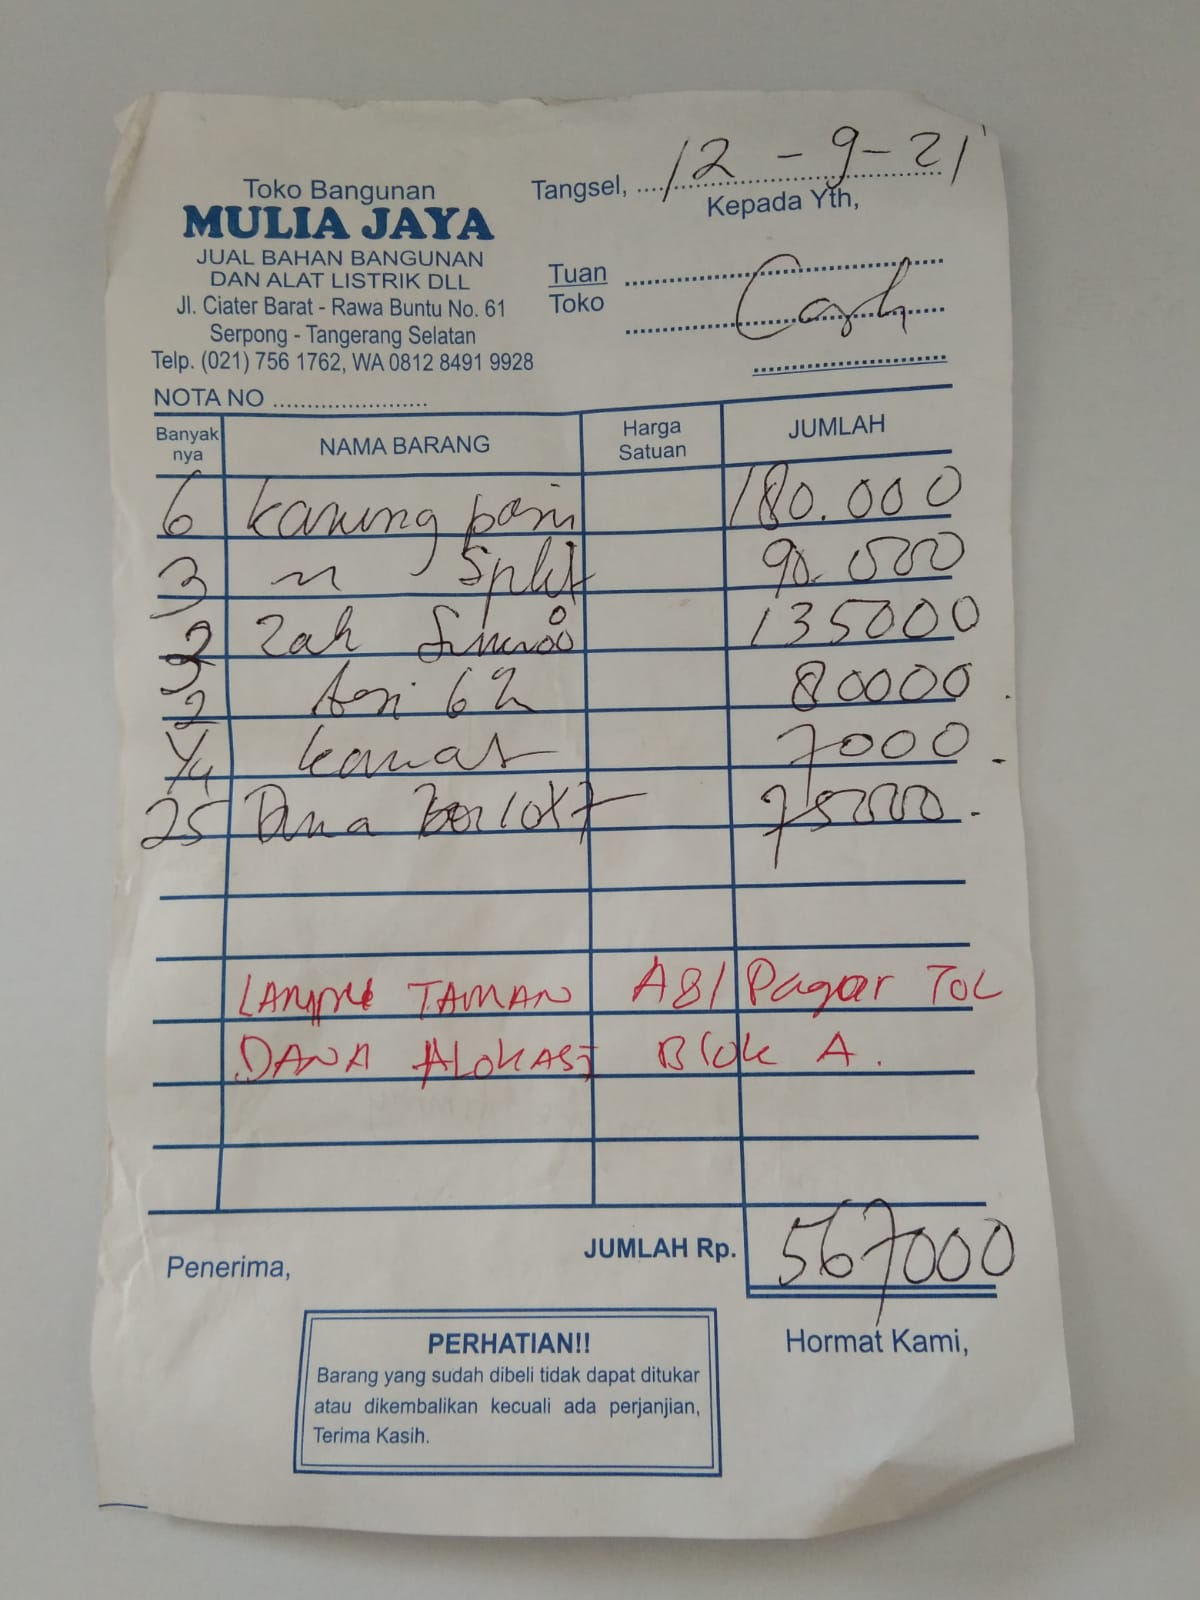 Toko Bangunan
MULIA JAYA
JUAL BAHAN BANGUNAN
DAN ALAT LISTRIK DLL
Jl. Ciater Barat - Rawa Buntu No. 61
Serpong - Tangerang Selatan
Telp. (021) 756 1762, WA 0812 8491 9928
NOTA NO ........................
Tangsel, 12 - 9 - 21
Kepada Yth,
Tuan
Toko
Cash
Banyak nya NAMA BARANG Harga Satuan JUMLAH
6 Karung pasir 180.000
3 Split 90.000
Zak 135000
2 80000
1/4 Kawat 7000
25 75000
LAMPU TAMAN A81 Pagar TOL
DANA ALOKASI Blok A.
JUMLAH Rp. 567000
Penerima,
Hormat Kami,
PERHATIAN!!
Barang yang sudah dibeli tidak dapat ditukar
atau dikembalikan kecuali ada perjanjian,
Terima Kasih.